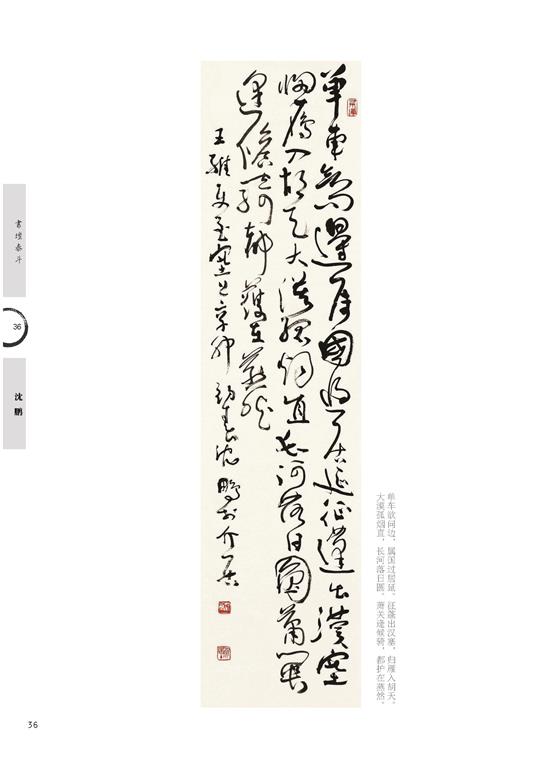 单车欲问边属国过居延征蓬出汉塞
归雁入胡天大漠孤烟直长河落日圆萧关
逢候骑都护在燕然
王维使至塞上辛卯初春沈鹏书于介居
单车欲问边，属国过居延。征蓬出汉塞，归雁入胡天。
大漠孤烟直，长河落日圆。萧关逢候骑，都护在燕然。
書壇泰斗
36
沈鹏
36